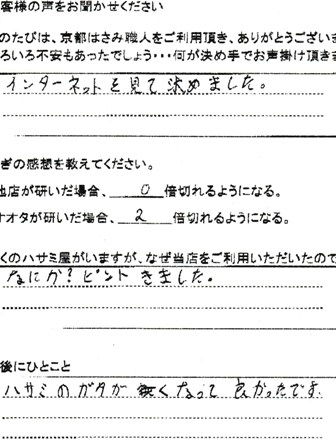 客様の声をお聞かせください
のたびは、京都はさみ職人をご利用頂き、ありがとうございま
ろいろ不安もあったでしょう・・・何が決め手でお声掛け頂きま
インターネットを見て決めました。
ぎの感想を教えてください。
他店が研いだ場合、 0 倍切れるようになる。
ナオタが研いだ場合、 2 倍切れるようになる。
くのハサミ屋がいますが、なぜ当店をご利用いただいたので
なにか?ピント きました。
後にひとこと
ハサミのガタが無くなって良かったです。